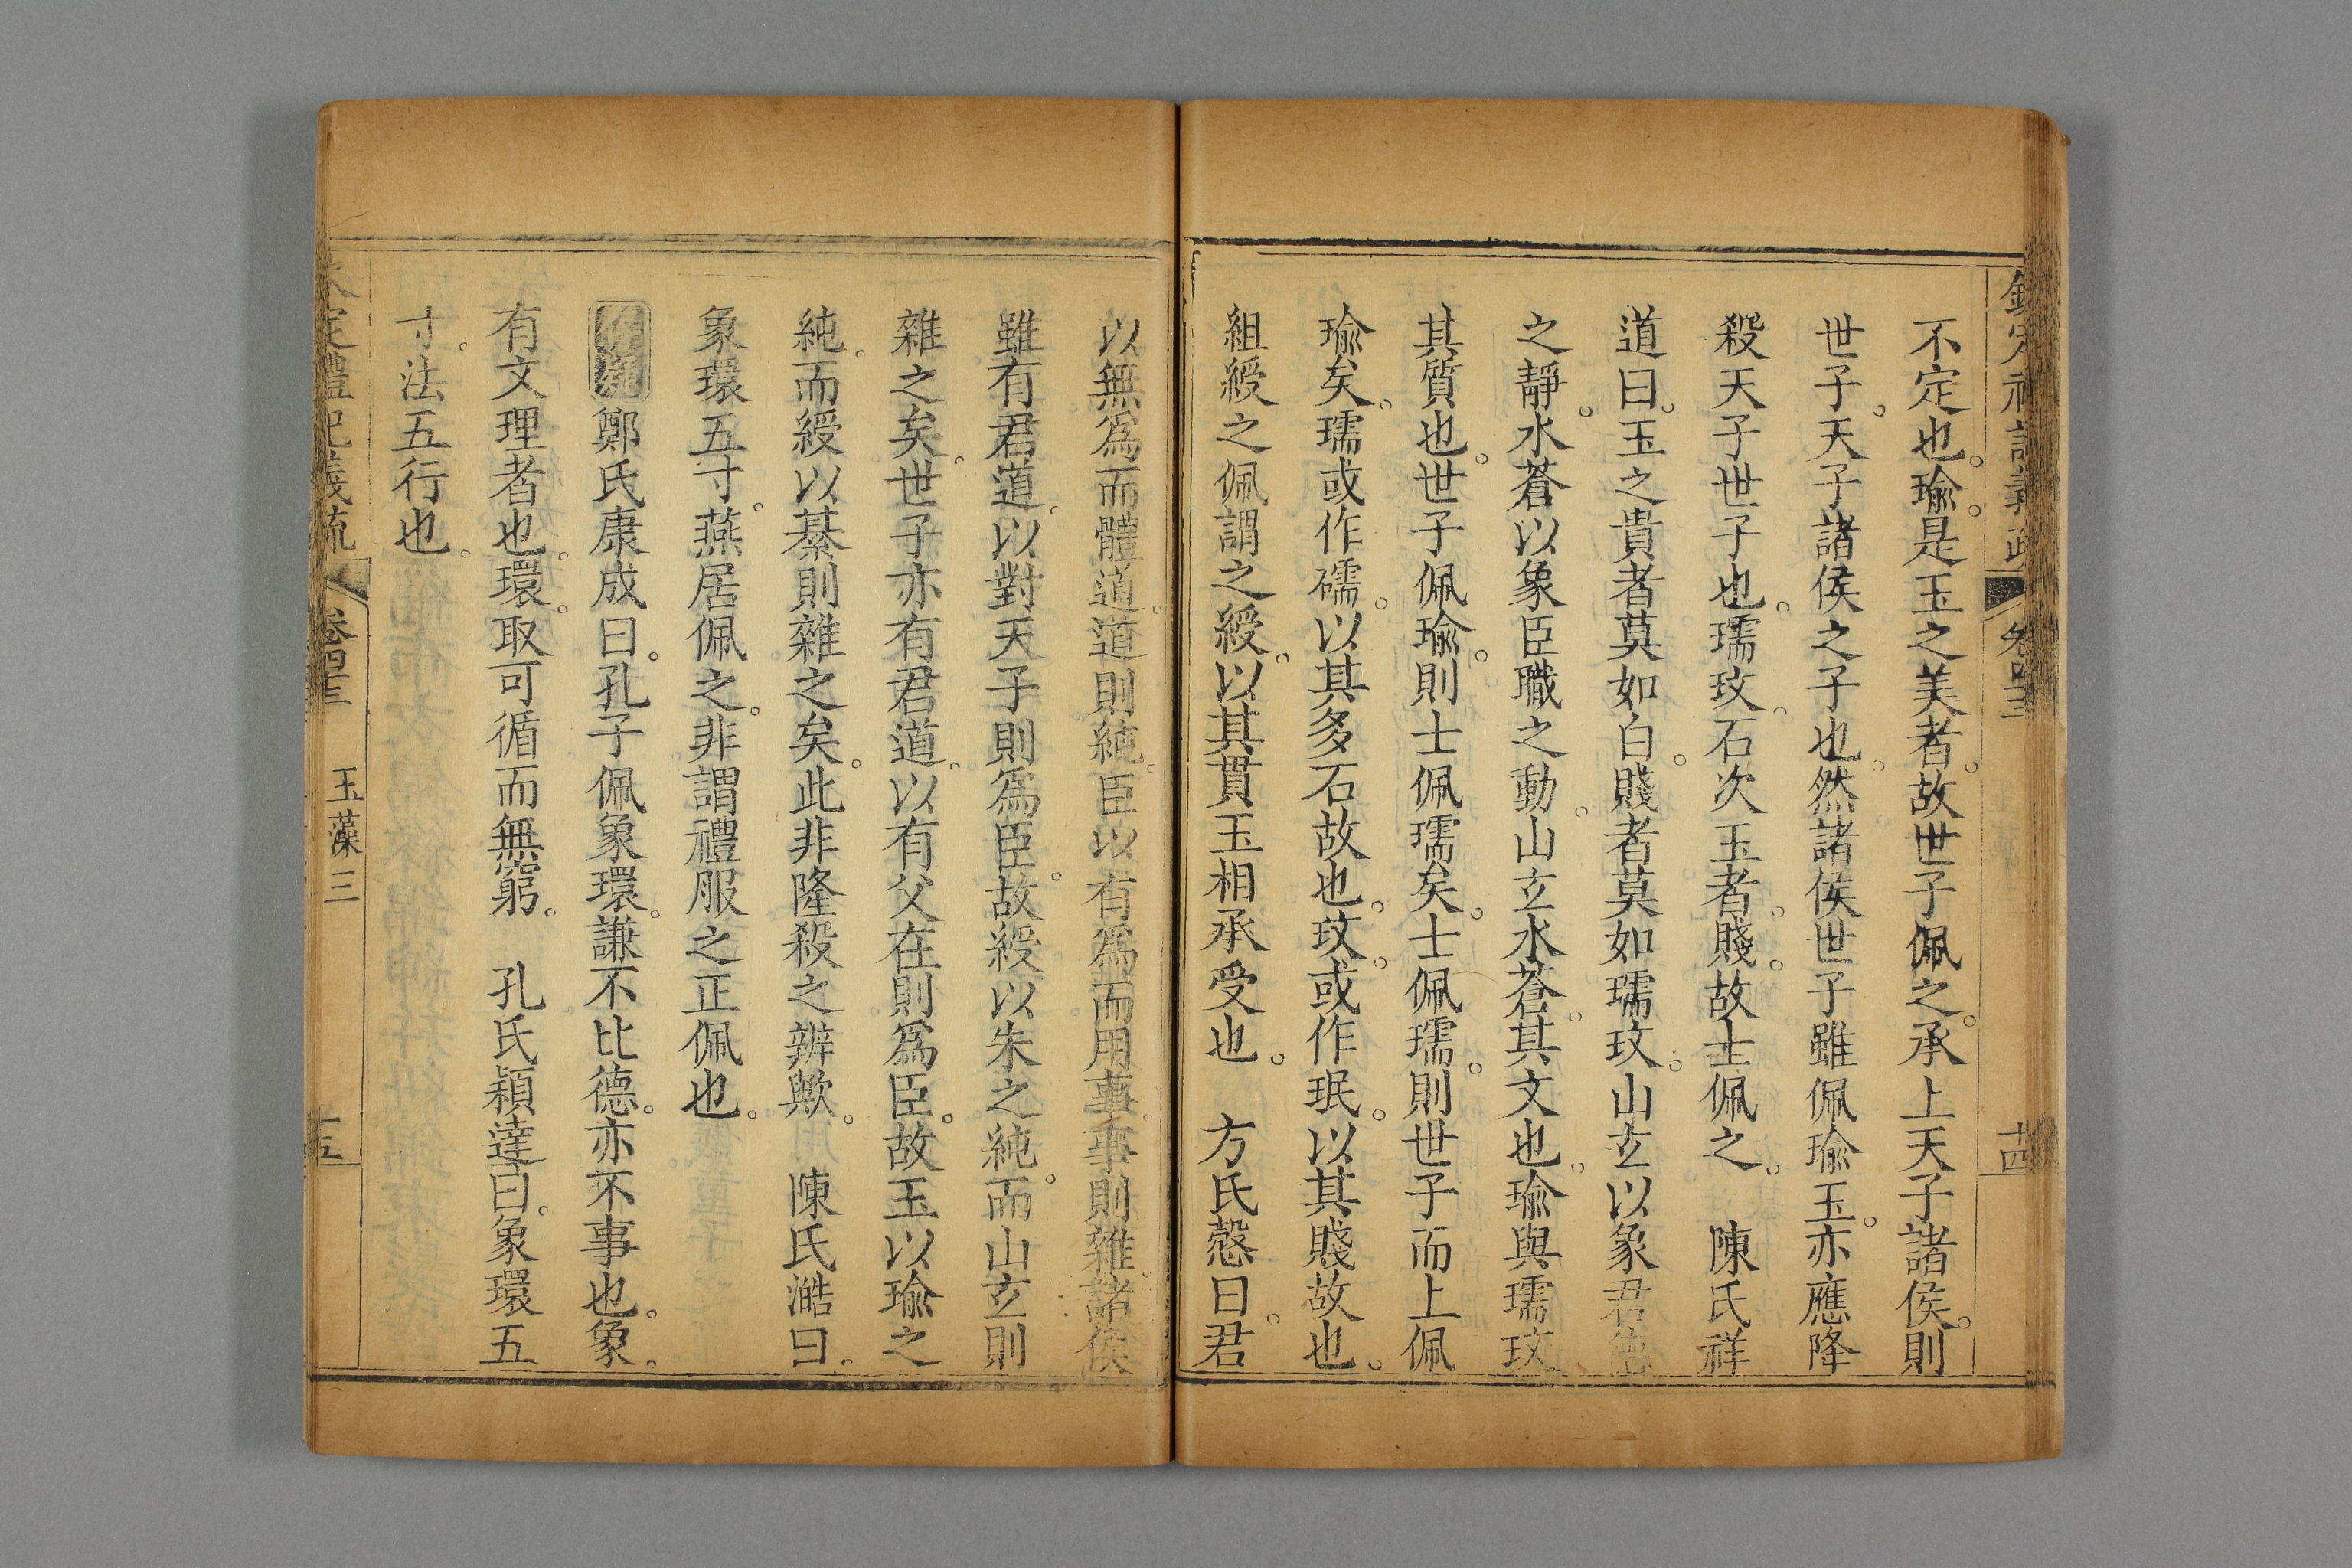 不定也。瑜。是玉之美者。故世子佩之。承上天子諸侯。則
世子。天子諸侯之子也。然諸侯世子雖佩瑜玉。亦應降
殺天子世子也。瓀玟。石次玉者。賤。故士佩之。　陳氏祥
道曰。玉之貴者莫如白。賤者莫如瓀玟。山玄以象君德
之靜。水蒼以象臣職之動。山玄水蒼。其文也。瑜與瓀玟。
其質也。世子佩瑜。則士佩瓀矣。士佩瓀。則世子而上佩
瑜矣。瓀或作礝。以其多石故也。玟。或作珉。以其賤故也。
組綬之佩謂之綬。以其貫玉相承受也。　方氏慤曰。君
以無爲而體道。道則純。臣以有爲而用事。事則雜。諸侯
雖有君道。以對天子則爲臣。故綬以朱之純。而山玄則
雜之矣。世子亦有君道。以有父在則爲臣。故玉以瑜之
純。而綬以綦則雜之矣。此非隆殺之辨歟。　陳氏澔曰。
象環五寸。燕居佩之。非謂禮服之正佩也。
鄭氏康成曰。孔子佩象環。謙不比德。亦不事也。象。
有文理者也。環。取可循而無窮。　孔氏穎達曰。象環五
寸。法五行也。
卷四十三
玉藻三